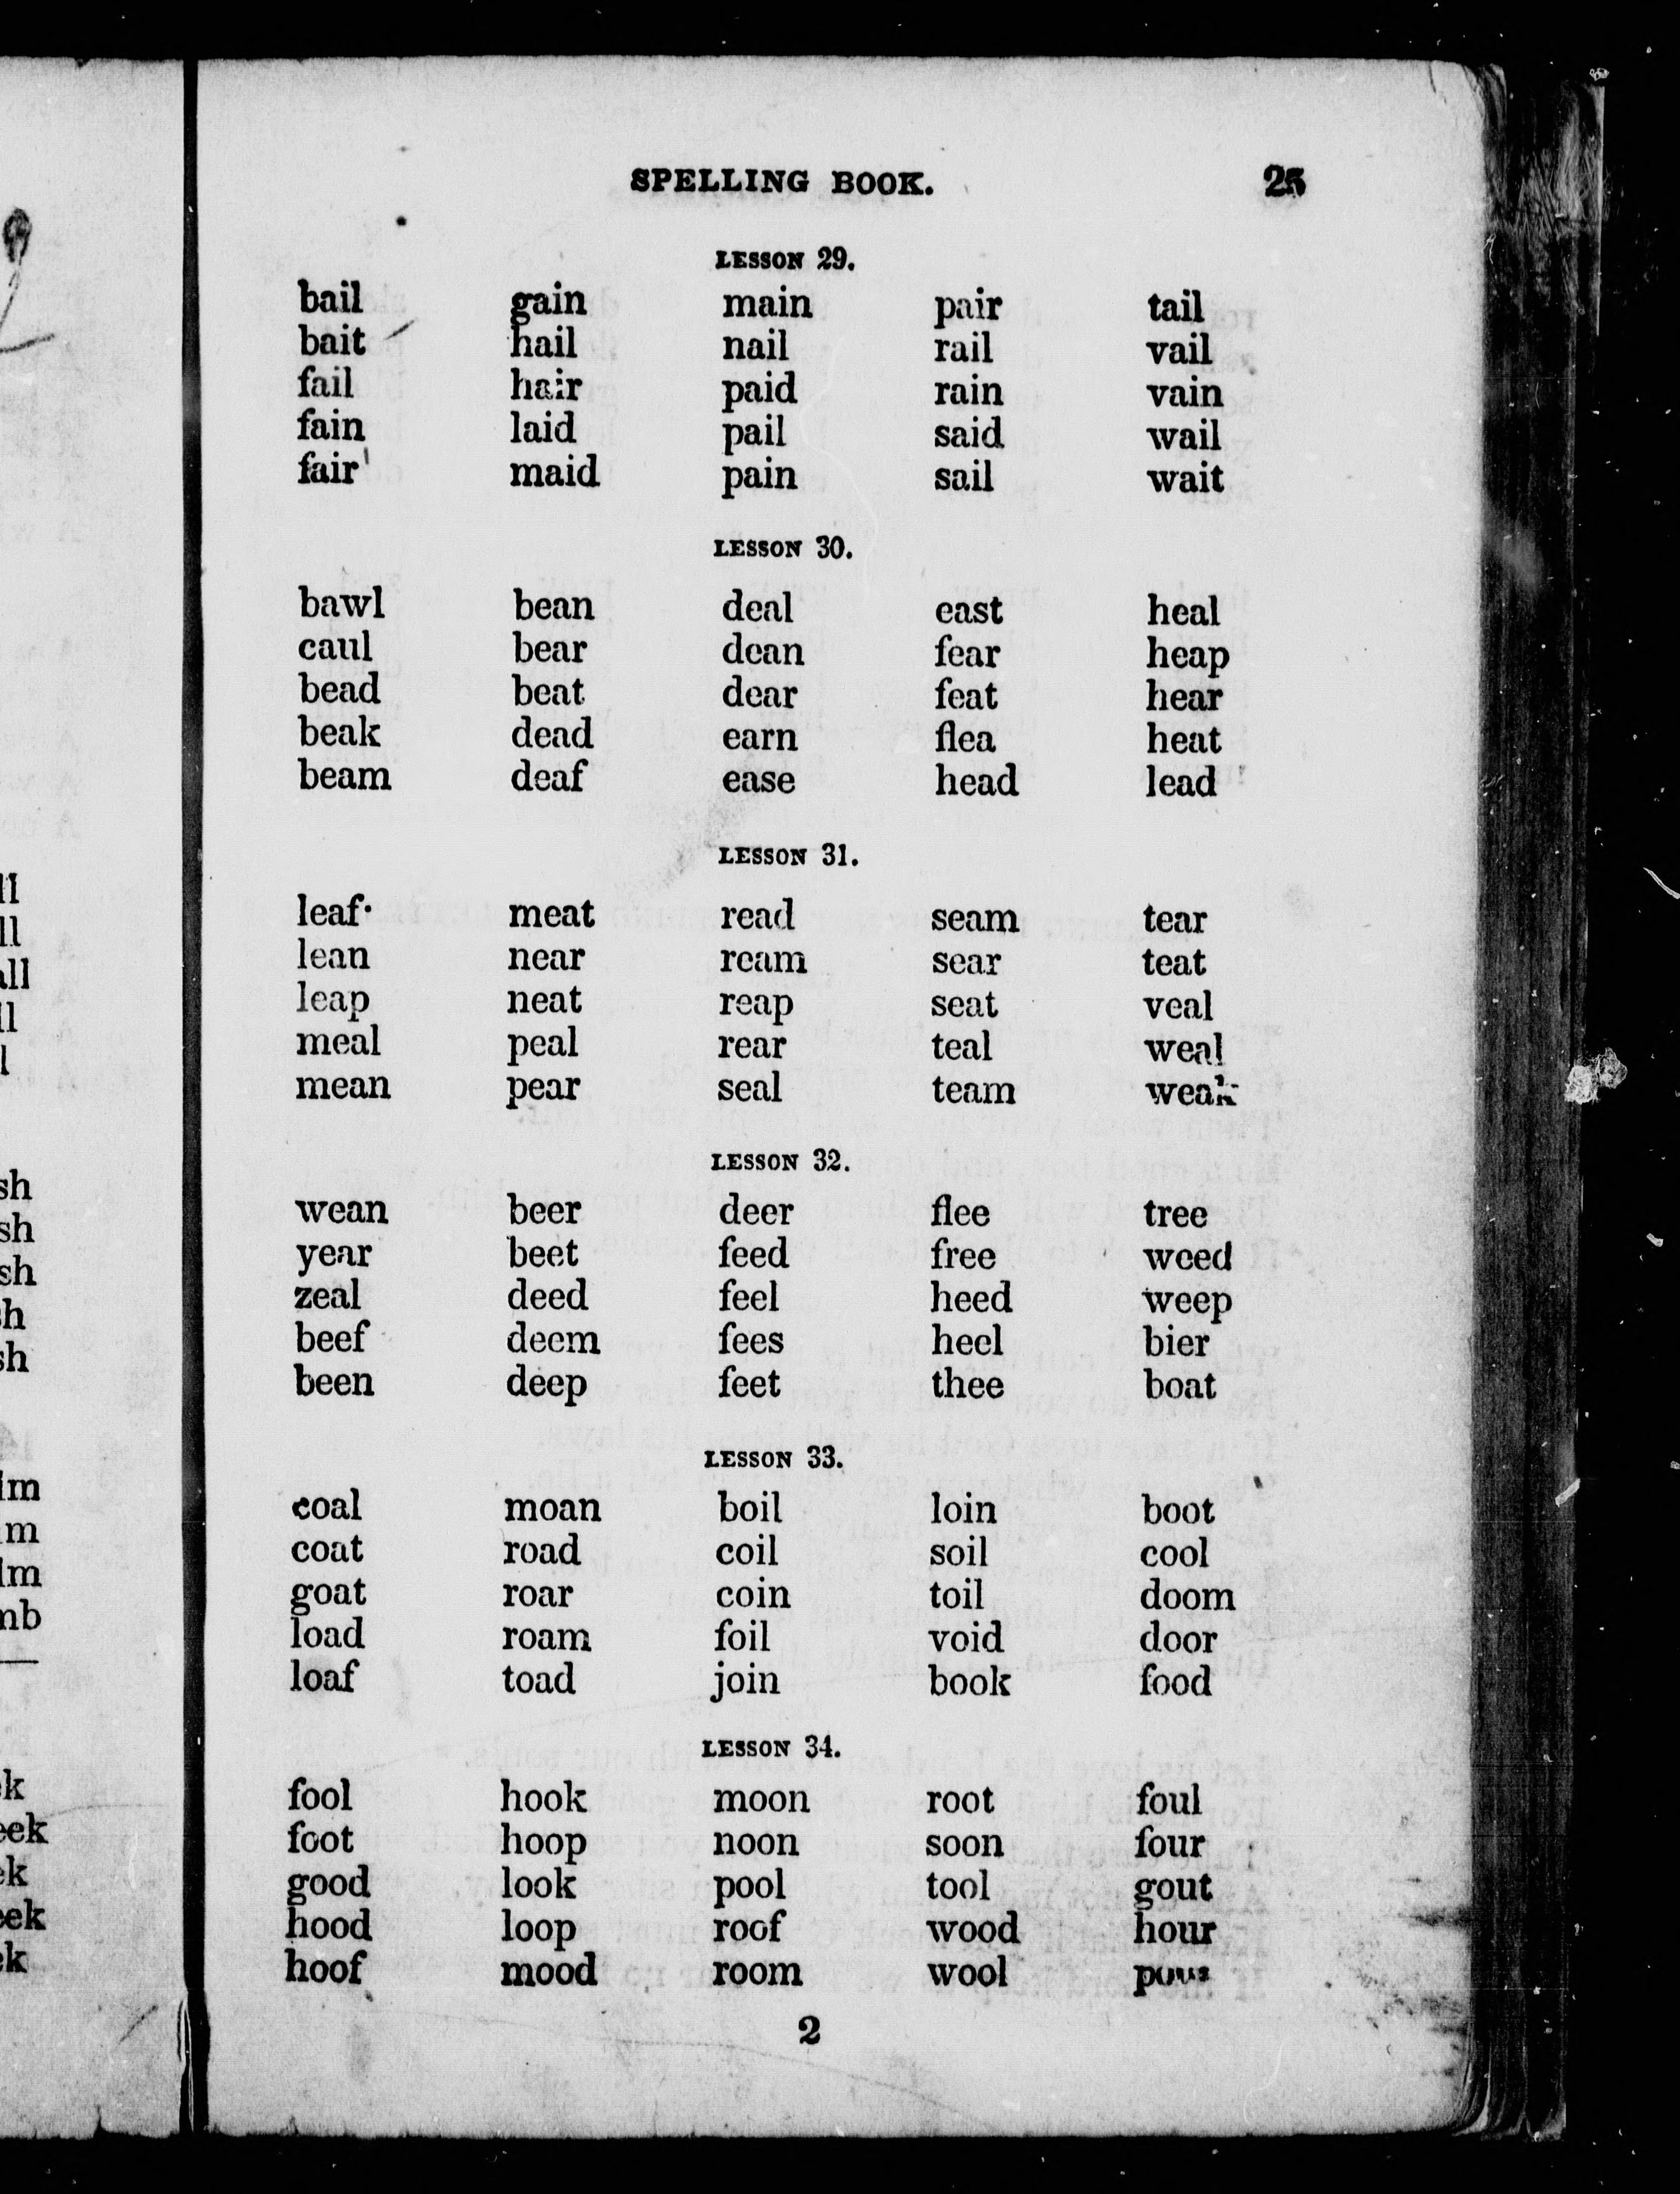 SPELLING BOOK. 25
LESSON 29.
bail gain main pair tail
bait hail nail rail vail
fail hair paid rain vain
fain laid pail said wail
fair maid pain sail wait
LESSON 30.
bawl bean deal east heal
caul bear dean fear heap
bead beat dear feat hear
beak dead earn flea heat
beam deaf ease head lead
LESSON 31.
leaf meat read seam tear
lean near ream sear teat
leap neat reap seat veal
meal peal rear teal weal
mean pear seal team weak
LESSON 32.
wean beer deer flee tree
year beet feed free weed
zeal deed feel heed weep
beef deem fees heel bier
been deep feet thee boat
LESSON 33.
coal moan boil loin boot
coat road coil soil cool
goat roar coin toil doom
load roam foil void door
loaf toad join book food
LESSON 34.
fool hook moon root foul
foot hoop noon soon four
good look pool tool gout
hood loop roof wood hour
hoof mood room wool
2